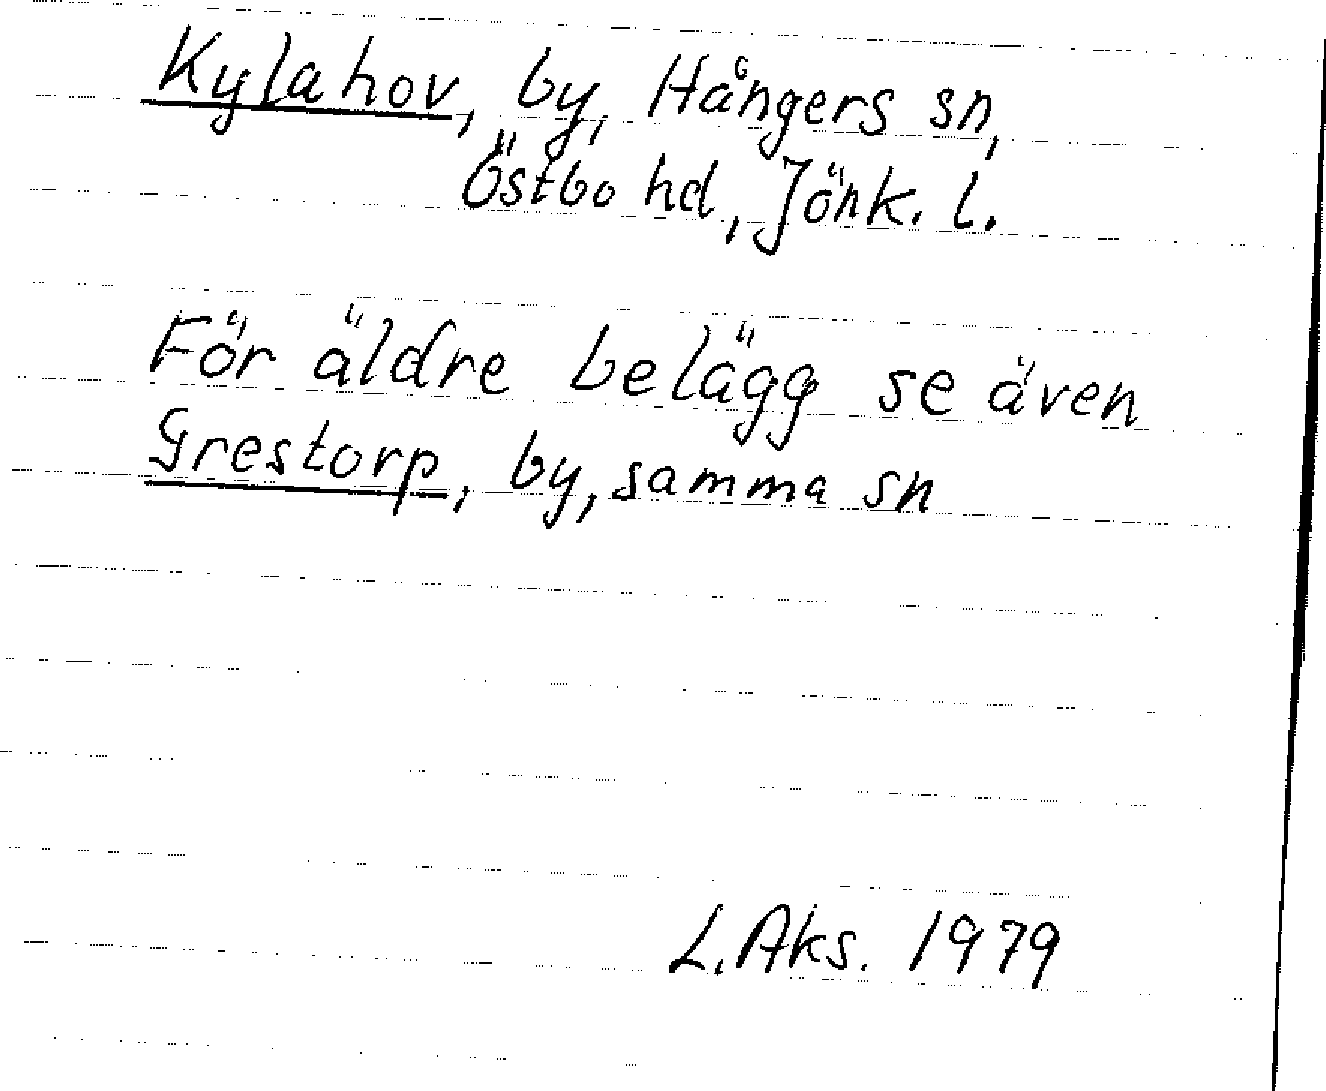 Kylahov, by, Hångers sn,
Östbo hd, Jönk. l.
För äldre belägg se även
Grestorp, by, samma sn
L. Aks. 1979